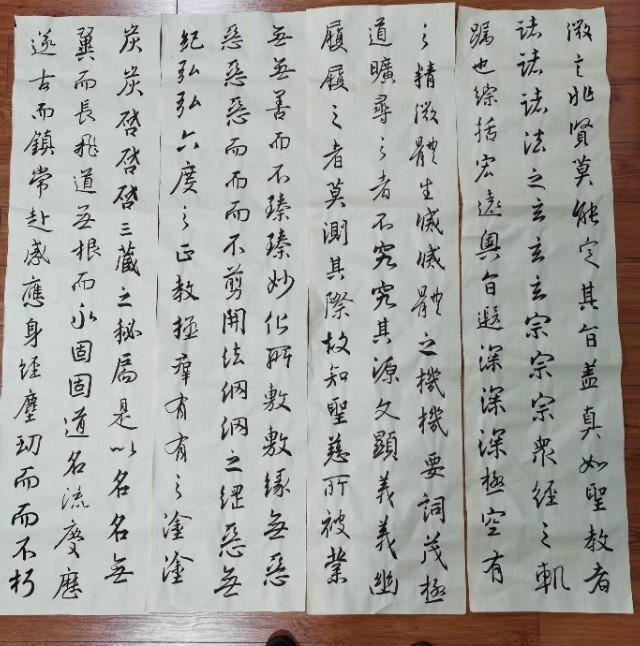 微言非賢莫能定其旨蓋真如聖教者
諸諸諸法之玄玄玄宗宗宗衆經之軌
躅也綜括宏遠奧旨遐深深深極空有
之精微體生滅滅體之機機要詞茂極
道曠尋之者不究究其源文顯義義幽
履履之者莫測其際故知聖慈所被業
無無善而不臻臻妙化所敷敷緣無惡
惡惡惡而而而不剪開法網網之綱惡無
紀弘弘六度之正教拯羣有有之塗塗
炭炭啓啓啓三藏之秘扃是以名名無
翼而長飛道無根而永固固道名流慶歷
遂古而鎮常赴感應身經塵劫而而不朽